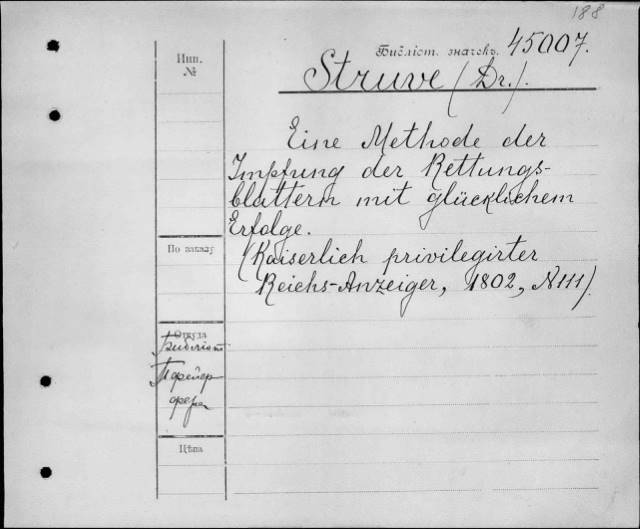 188
Библіот. значокъ. 45007.
Инв.
№
Struve (Dr.).
Eine Methode der
Impfung der Rettungs-
blattern mit glücklichem
Erfolge.
(Kaiserlich privilegirter
Reichs-Anzeiger, 1802, N111).
По заказу
Откуда
Библіот
Цѣна